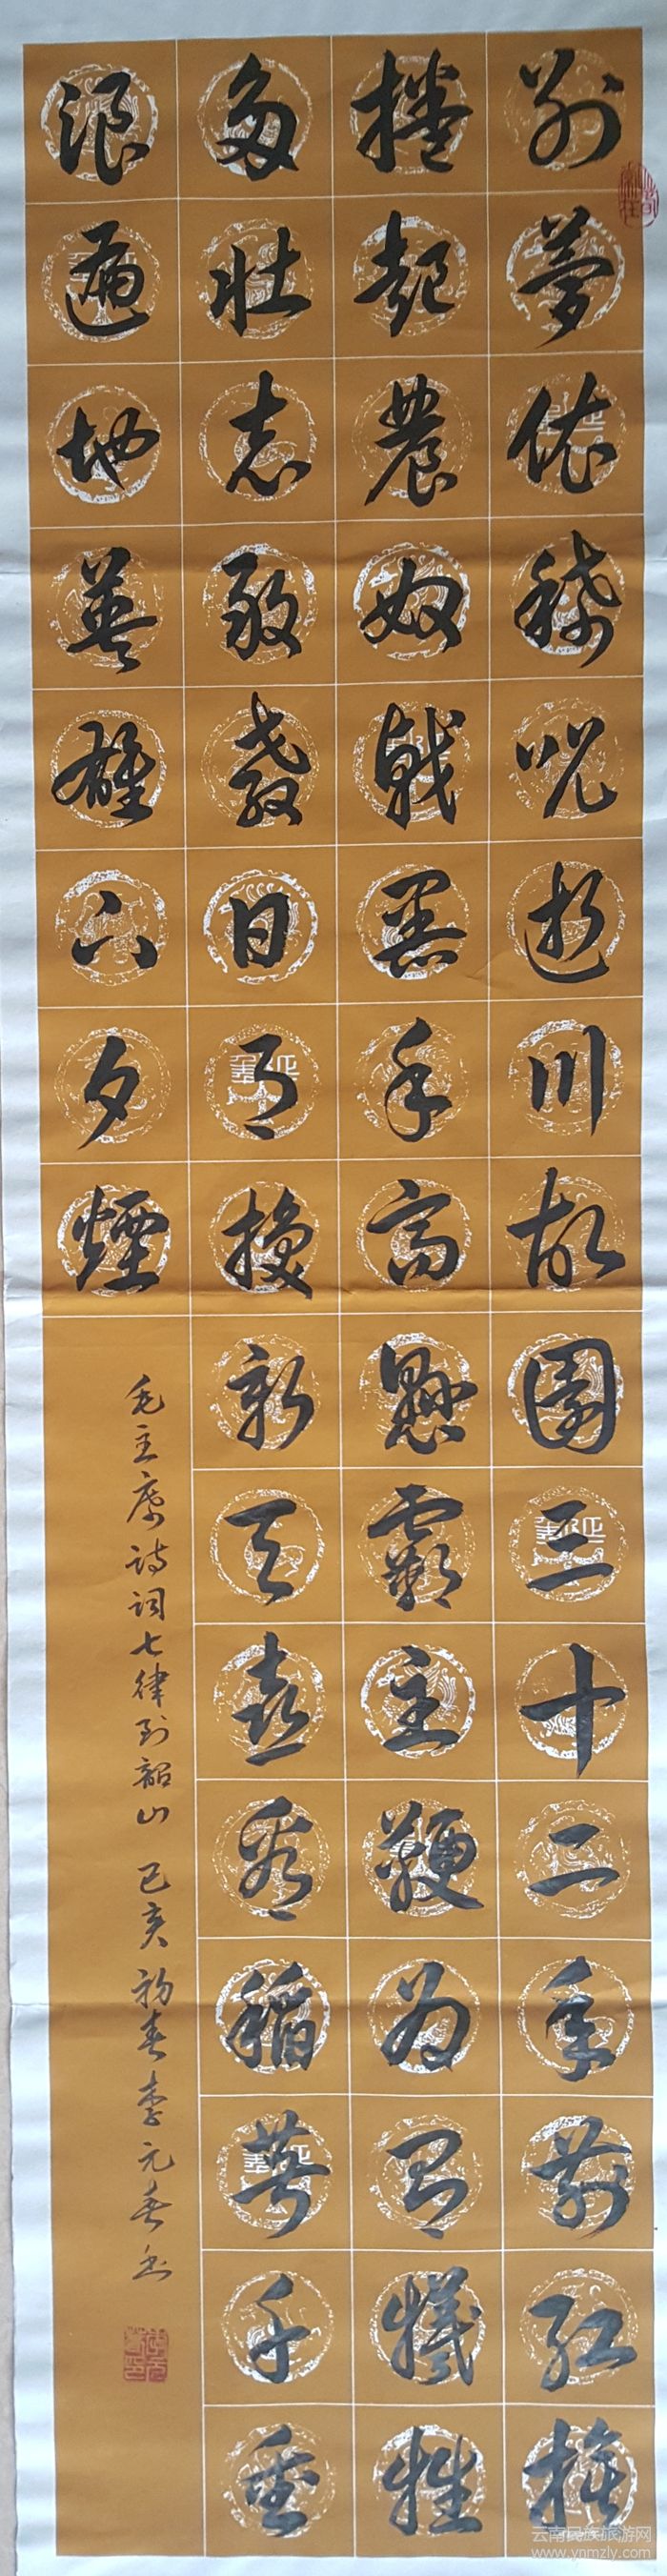 别夢依稀咒逝川故園三十二年前紅旗
捲起農奴戟黑手高懸霸主鞭為有犧牲
多壯志敢教日月換新天喜看稻菽千重
浪遍地英雄下夕煙
毛主席詩詞七律到韶山 己亥初春李元春书
云南民族旅游网
www.ynmzly.com